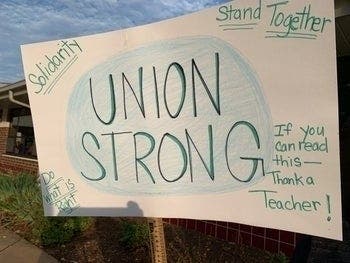 Solidarity
Stand Together
UNION
STRONG
If you
can read
this—
Thank a
Teacher!
Do
what is
Right